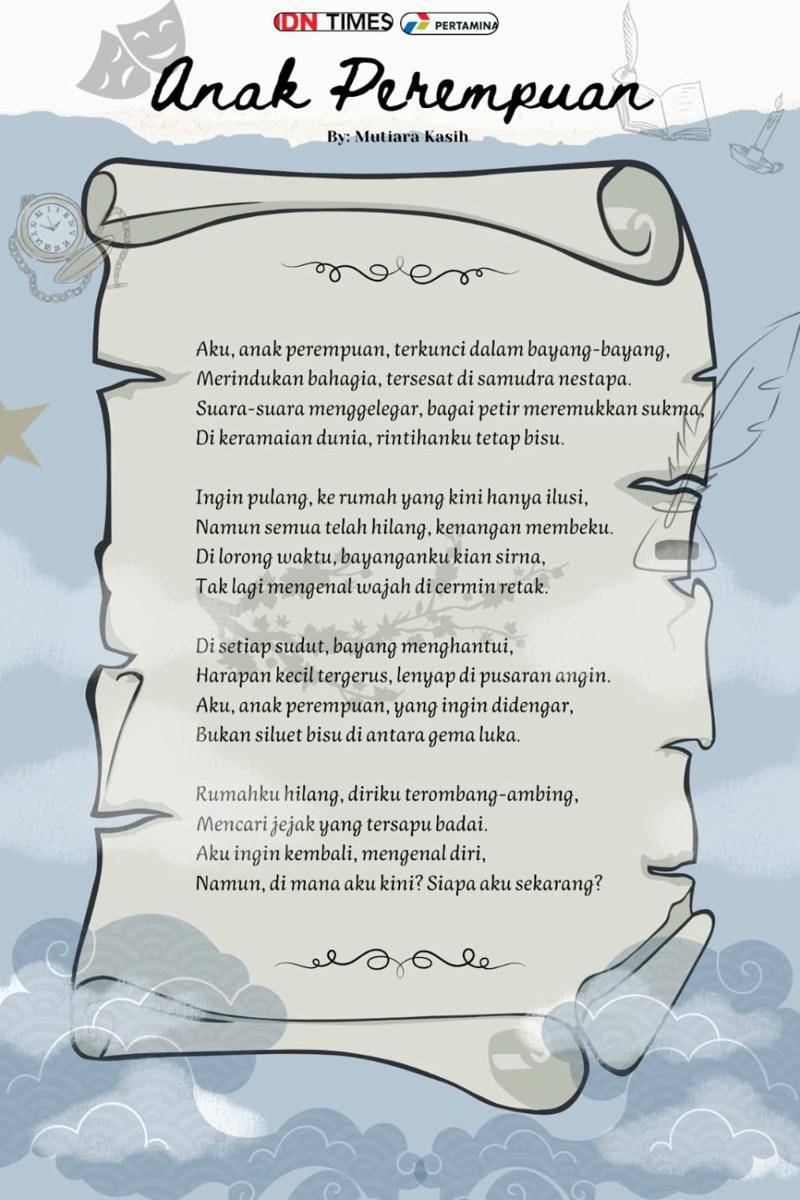 IDN TIMES PERTAMINA
Anak Perempuan
By: Mutiara Kasih
Aku, anak perempuan, terkunci dalam bayang-bayang,
Merindukan bahagia, tersesat di samudra nestapa.
Suara-suara menggelegar, bagai petir meremukkan sukma,
Di keramaian dunia, rintihanku tetap bisu.
Ingin pulang, ke rumah yang kini hanya ilusi,
Namun semua telah hilang, kenangan membeku.
Di lorong waktu, bayanganku kian sirna,
Tak lagi mengenal wajah di cermin retak.
Di setiap sudut, bayang menghantui,
Harapan kecil tergerus, lenyap di pusaran angin.
Aku, anak perempuan, yang ingin didengar,
Bukan siluet bisu di antara gema luka.
Rumahku hilang, diriku terombang-ambing,
Mencari jejak yang tersapu badai.
Aku ingin kembali, mengenal diri,
Namun, di mana aku kini? Siapa aku sekarang?